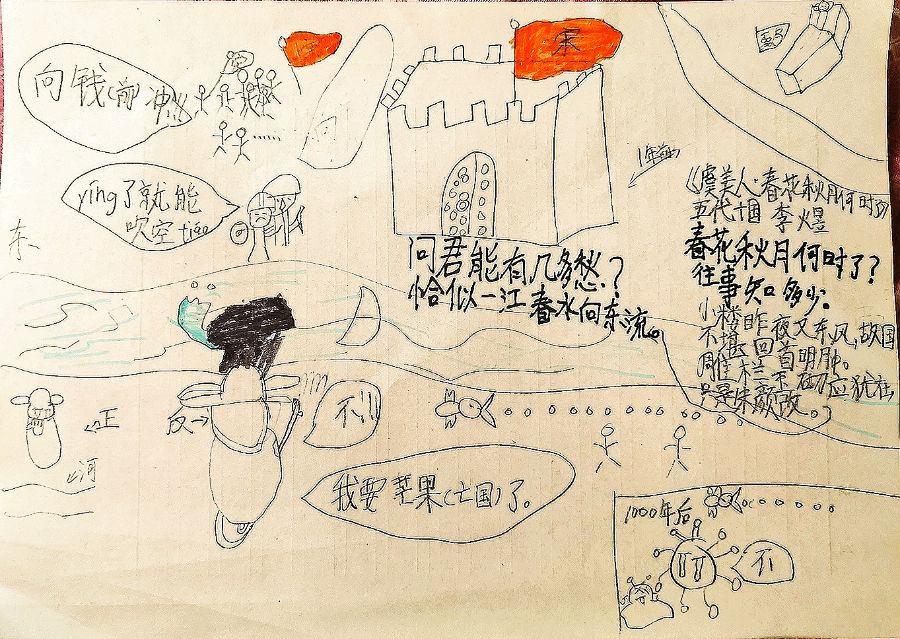 向钱(前)冲
宋
1年前
yīng了就能
吹空tiáo
东
《虞美人·春花秋月何时了
五代十国 李煜
春花秋月何时了?
往事知多少。
小楼昨夜又东风,故国
不堪回首明月中。
雕栏玉砌应犹在
只是朱颜改。
问君能有几多愁?
恰似一江春水向东流。
←正
反→
不!!
河
我要芒果(亡国)了。
1000年后
不